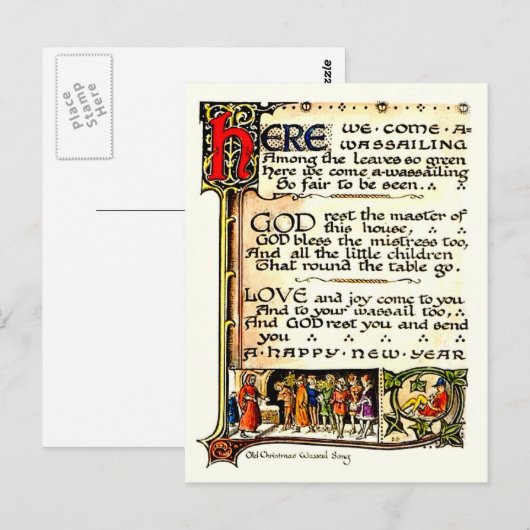 Place
Stamp
Here
HERE WE · COME · A-
WASSAILING
Among the leaves so green
Here we come a-wassailing
So fair to be seen
GOD rest the master of
this house,
GOD bless the mistress too,
And all the little children
That round the table go.
LOVE and joy come to you
And to your wassail too,
And GOD rest you and send
you
A · HAPPY · NEW · YEAR
Old Christmas Wassail Song